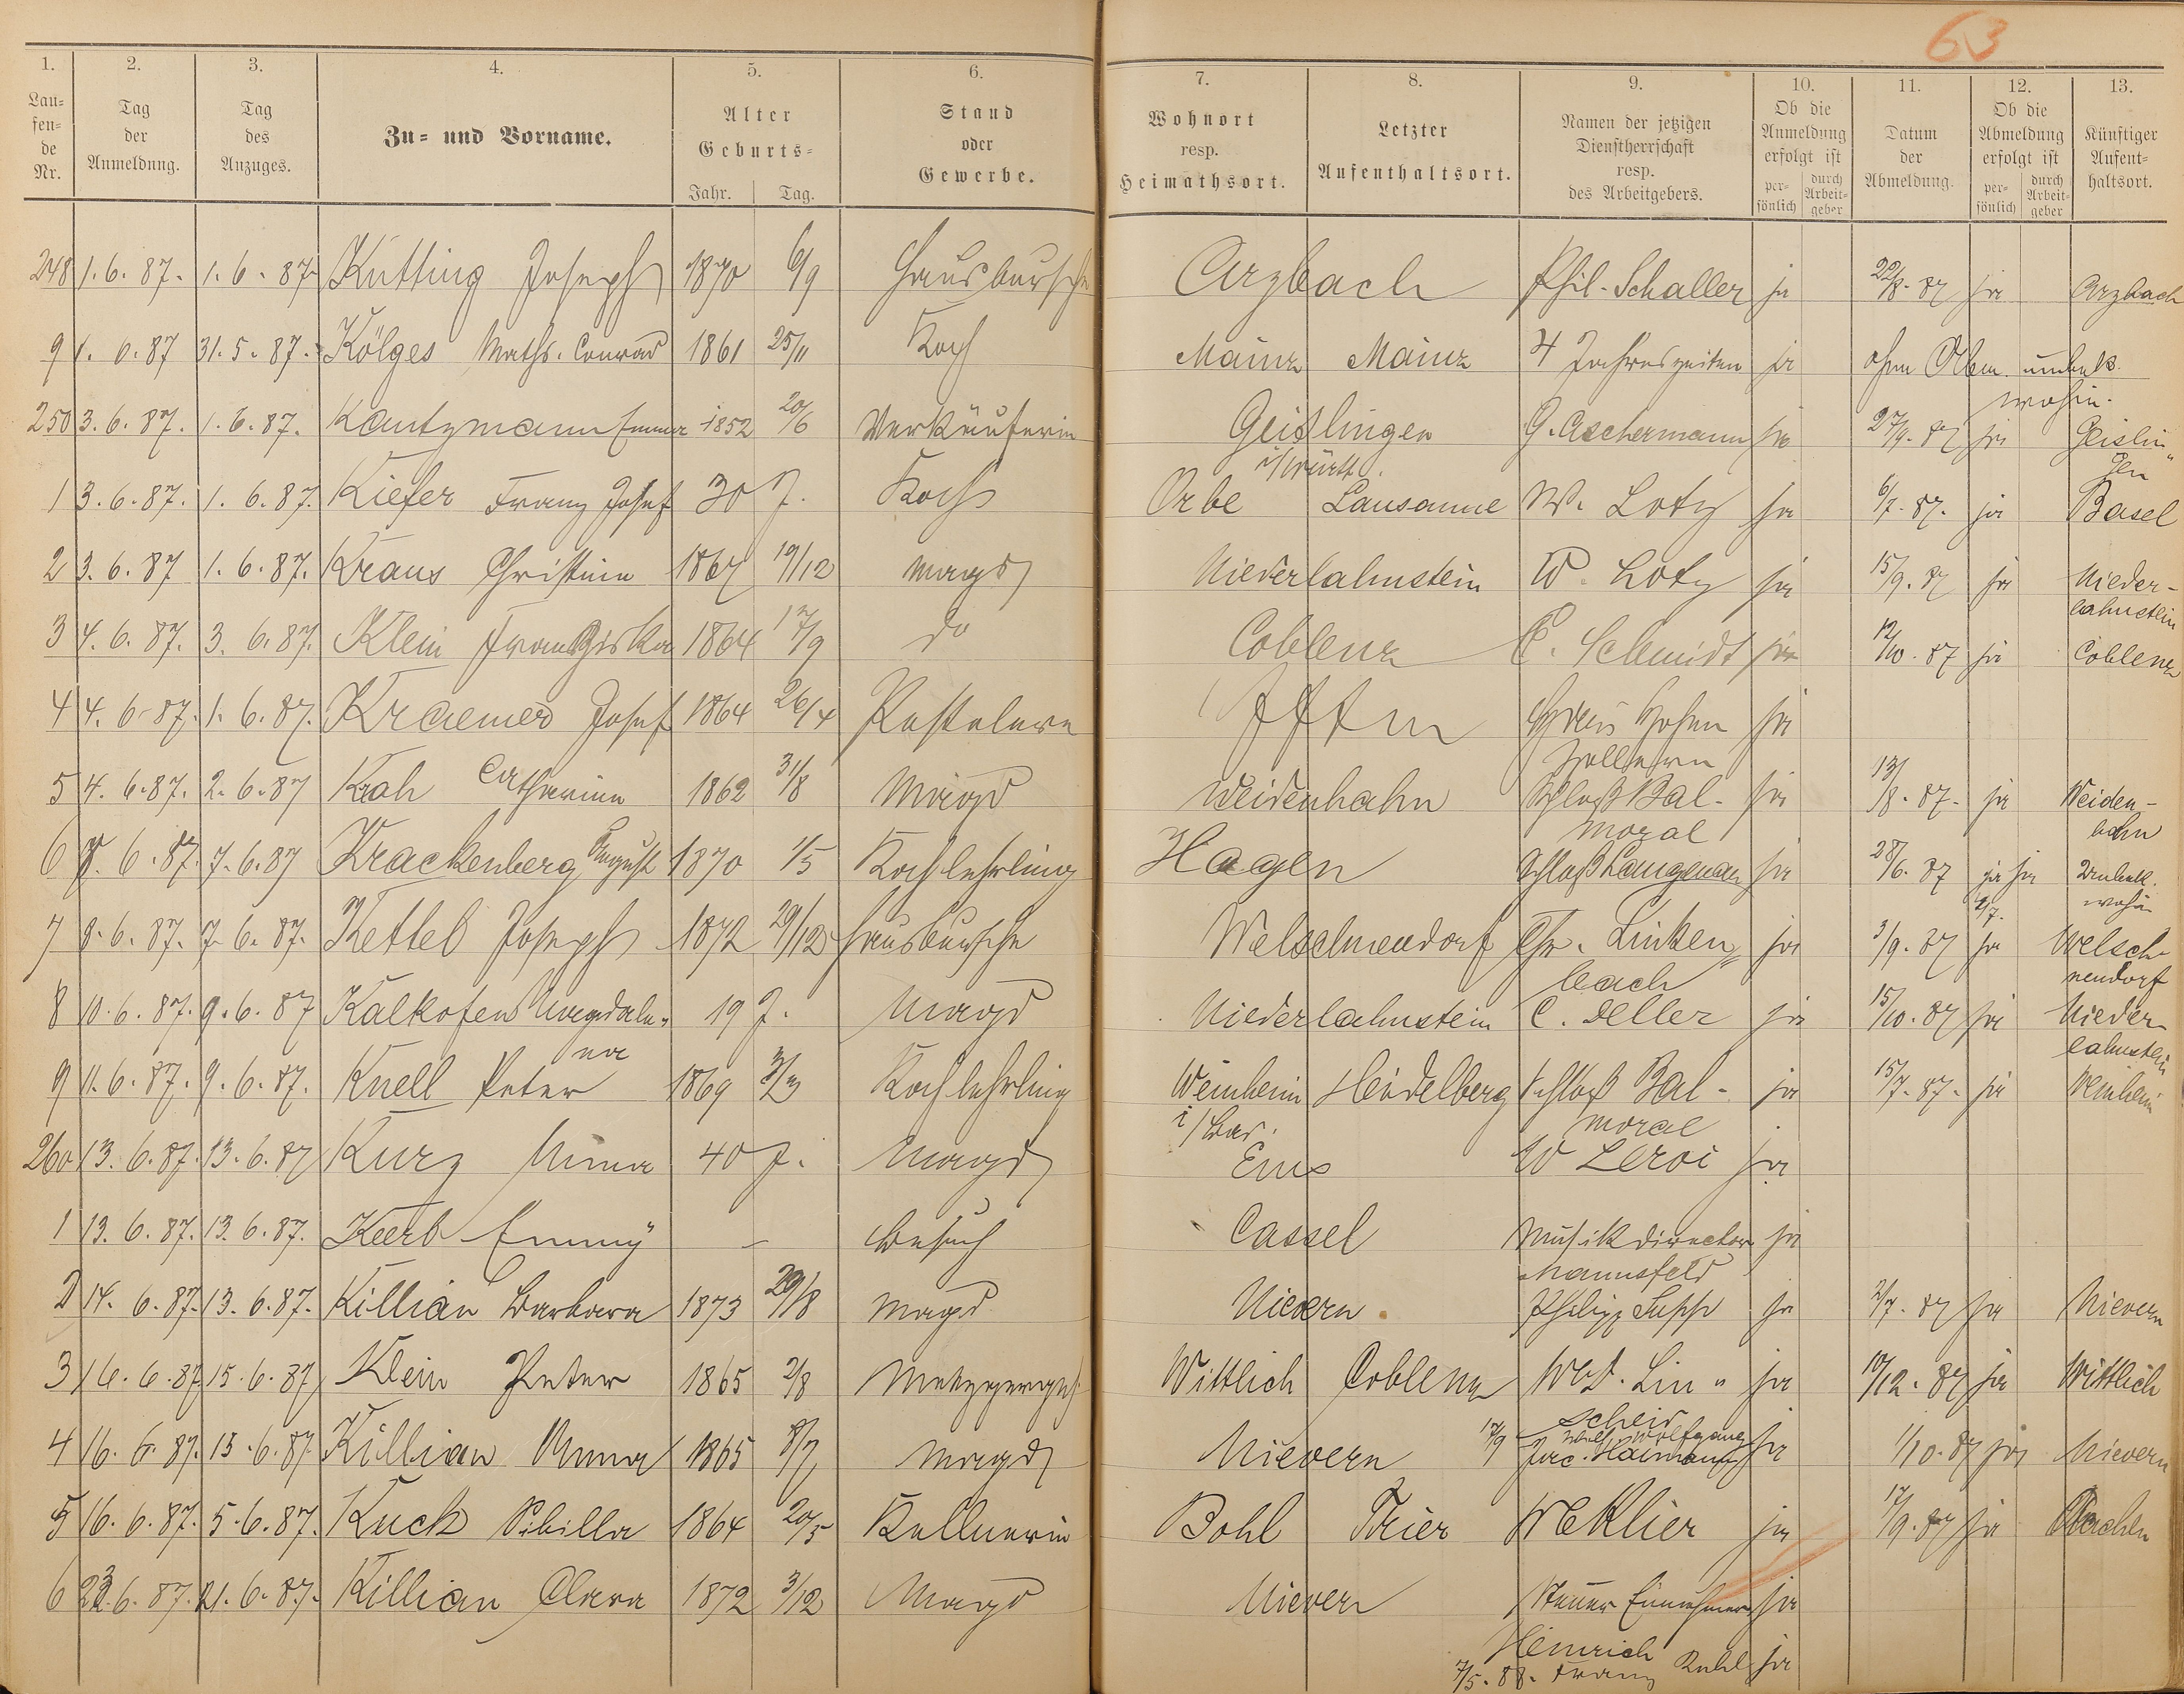 63
1. 2. 3. 4. 5. 6. 7. 8. 9. 10. 11. 12. 13.
Lau-
fen-
de
Nr.
Tag
der
Anmeldung.
Tag
des
Anzuges.
Zu- und Vorname.
Alter
Geburts-
Jahr. Tag.
Stand
oder
Gewerbe.
Wohnort
resp.
Heimathsort.
Letzter
Aufenthaltsort.
Namen der jetzigen
Dienstherrschaft
resp.
des Arbeitgebers.
Ob die
Anmeldung
erfolgt ist
per-
sönlich
durch
Arbeit-
geber
Datum
der
Abmeldung.
Ob die
Abmeldung
erfolgt ist
per-
sönlich
durch
Arbeit-
geber
Künftiger
Aufent-
haltsort.
248 1.6.87. 1.6.87. Kutting Joseph 1870 6/9 Hausbursche Arzbach Phil. Schaller ja 22/8.87 ja Arzbach
9 1.6.87 31.5.87. Kölges Maths. Conrad 1861 25/11 Koch Mainz Mainz 4 Jahreszeiten ja ohne Abm. unbek.
wohin.
250 3.6.87. 1.6.87. Kantzmann Emma 1852 20/6 Verkäuferin Geislingen G. Aschermann ja 27/9.87 ja Geislin"
i/Württ. gen
1 3.6.87. 1.6.87. Kiefer Franz Josef 30 J. Koch Orbe Lausanne W. Lotz ja 6/7.87. ja Basel
2 3.6.87 1.6.87. Kraus Christina 1867 19/12 Magd Niederlahnstein W. Lotz ja 15/9.87 ja Nieder-
lahnstein
3 4.6.87. 3.6.87. Klein Franziska 1864 17/9 do Coblenz C. Schmidt ja 12/10.87 ja Coblenz
4 4.6.87. 1.6.87. Kraemer Josef 1864 26/4 ja
5 4.6.87. 2.6.87 Krah Catharina 1862 31/8 Magd Weidenhahn Schloß Bal- ja 13/8.87. ja Weiden-
moral hahn
6 8.6.87. 7.6.87 Krackenberg August 1870 1/5 Kochlehrling Hagen Schloß Langenau ja 28/6.87 ja ja Unbek.
2/7. wohin
7 8.6.87. 7.6.87. Kettel Joseph 1872 29/12 Hausbursche Welschnendorf Chr. Linken" ja 3/9.87 ja Welsch-
bach nendorf
8 10.6.87. 9.6.87 Kalkofen Magdale- 19 J. Magd Niederlahnstein C. Deller ja 15/10.87 ja Nieder-
na lahnstein
9 11.6.87. 9.6.87. Knell Peter 1869 3/3 Kochlehrling Weinheim Heidelberg Schloß Bal- ja 15/7.87. ja Weinheim
i/Bad. moral
260 13.6.87. 13.6.87 Kurz Anna 40 J. Magd Ems W Leroi ja
1 13.6.87. 13.6.87. Keerl Emmy – Besuch Cassel Musikdirector ja
Mannsfeld
2 14.6.87. 13.6.87. Killian Barbara 1873 29/8 Magd Nievern Philipp Supp ja 2/7.87 ja Nievern
3 16.6.87. 15.6.87 Klein Peter 1865 2/8 Metzgerges. Wittlich Coblenz Wwe. Lin" ja 10/12.87 ja Wittlich
scheid
4 16.6.87. 15.6.87 Killian Anna 1865 8/7 Magd Nievern 17/9 Wolfgang ja 1/10.87 ja Nievern
Jac. Haimann
5 16.6.87. 5.6.87. Kuch Sibilla 1864 20/5 Kellnerin Bohl Trier W Klier ja 17/9.87 ja Aachen
6 23.6.87. 21.6.87. Killian Clara 1872 3/12 Magd Nievern Steuer Einnehmer ja
Heinrich
7/5.88. Franz Kuhl ja